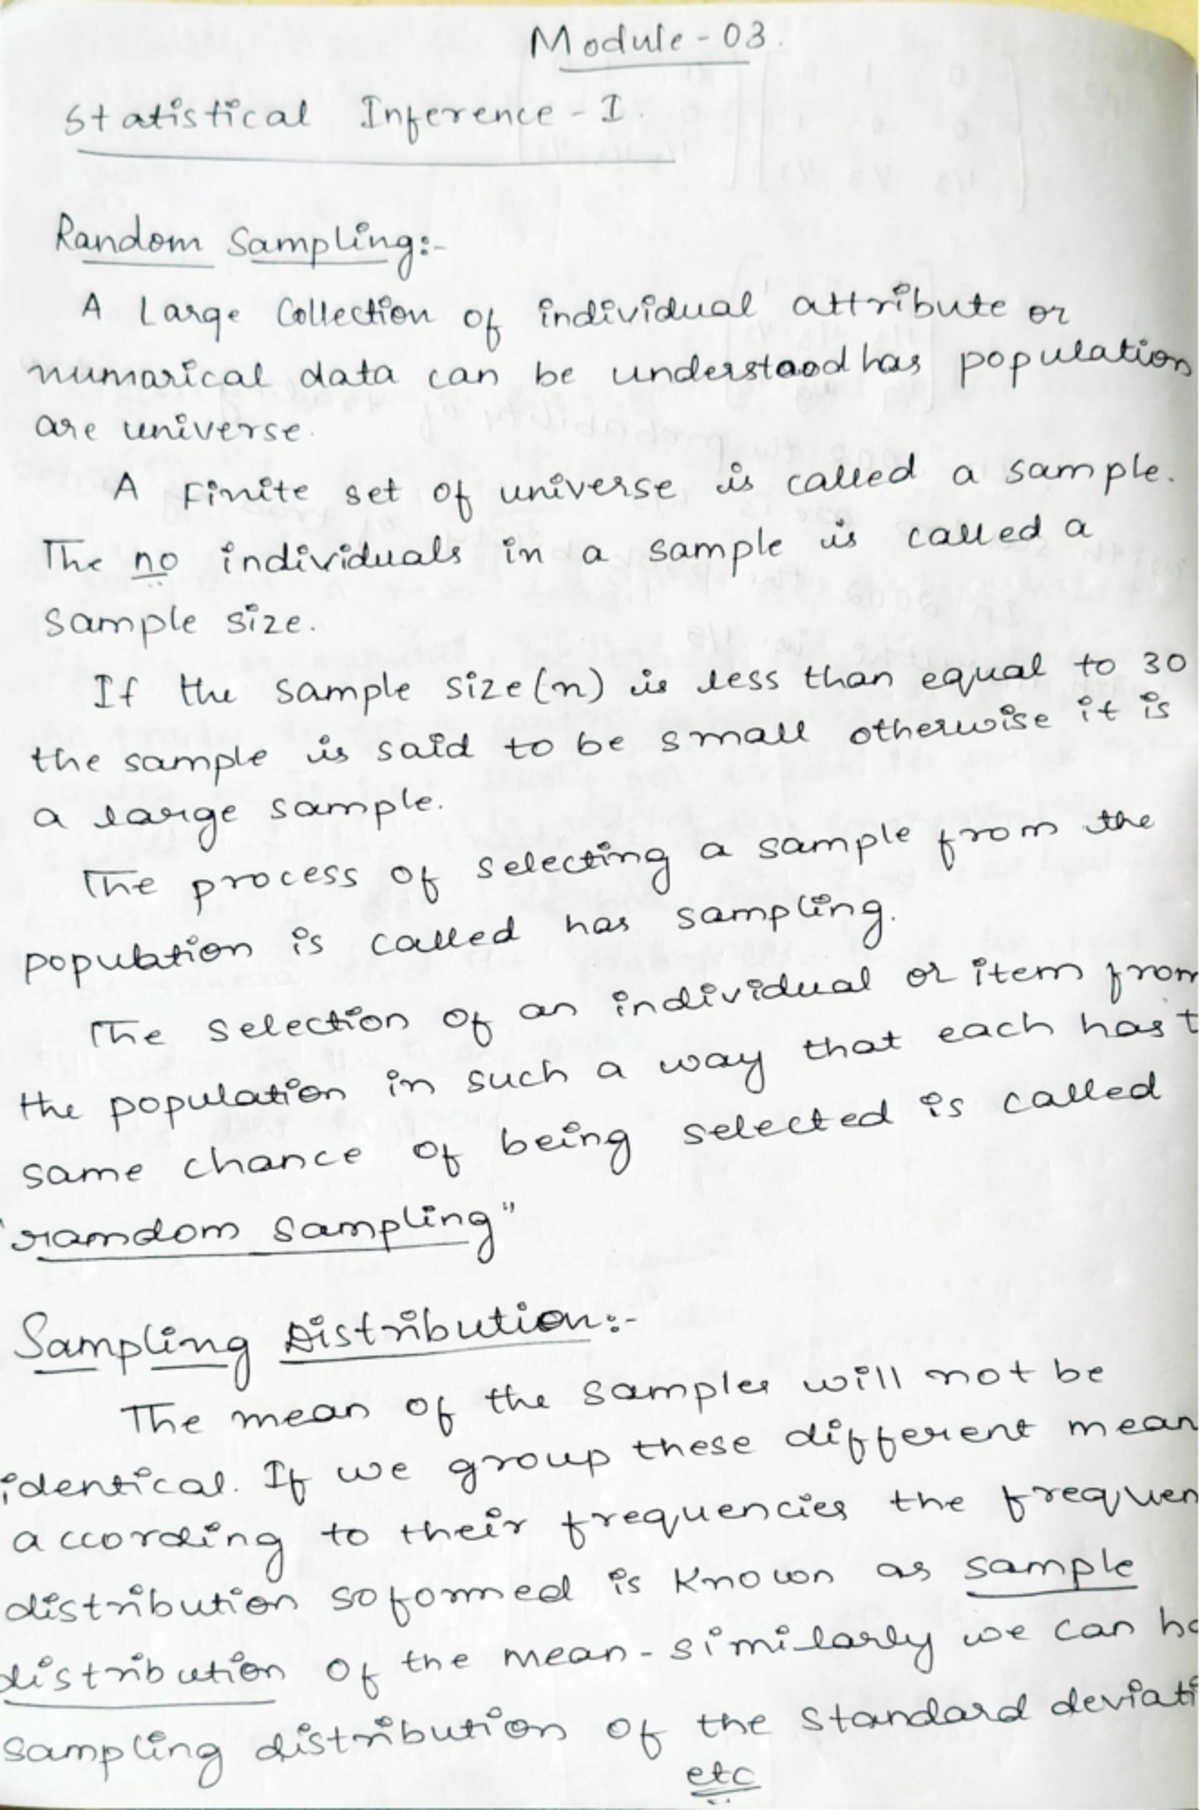 Module - 03.
Statistical Inference - I.
Random Sampling:-
A Large Collection of individual attribute or
numarical data can be understood has population
are universe.
A Finite set of universe is called a sample.
The no individuals in a sample is called a
sample size.
If the sample size(n) is less than equal to 30
the sample is said to be small otherwise it is
a large sample.
The process of selecting a sample from the
population is called has sampling.
The selection of an individual or item from
the population in such a way that each has t
same chance of being selected is called
"ramdom sampling"
Sampling Distribution:-
The mean of the samples will not be
identical. If we group these different mean
according to their frequencies the frequen
distribution so formed is known as sample
distribution of the mean - similarly we can ha
sampling distribution of the standard deviati
etc